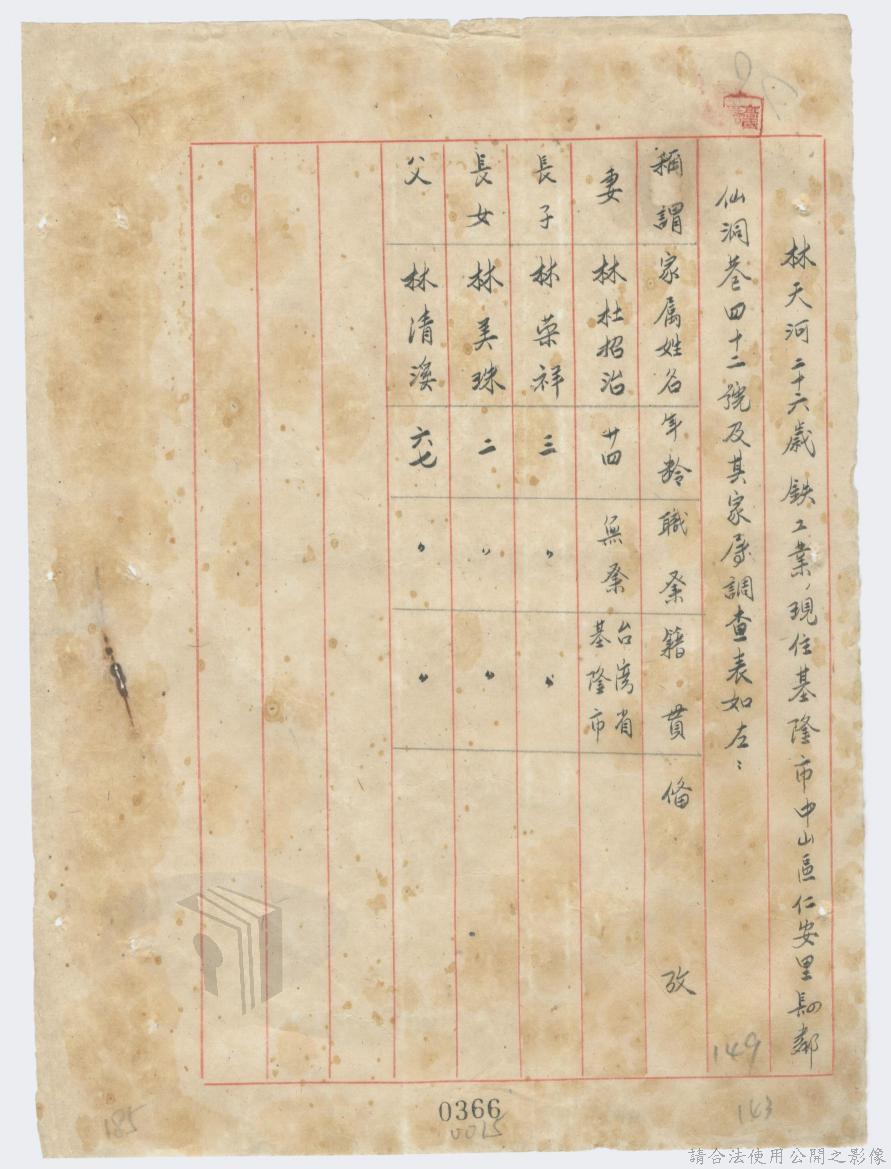 林天河二十六歲鉄工業,現住基隆市中山區仁安里
鄰
仙洞巷四十二號及其家屬調查表如左:
稱謂 家属姓名 年齡 職業 籍貫 備攷
妻 林杜招治 廿四 無業 台湾省基隆市
長子 林荣祥 三 〃 〃
長女 林美珠 二 〃 〃
父 林清溪 六七 〃 〃
149
143
185
0366
0015
請合法使用公開之影像